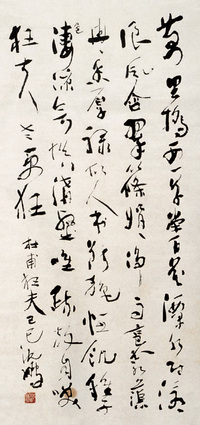 萬里橋西一草堂百花潭水即滄
浪風含翠篠娟娟淨雨裛紅蕖
冉冉香厚祿故人書斷絕恒飢稚子
色淒涼欲填溝壑唯疏放自笑
狂夫老更狂
杜甫狂夫己巳沈鵬